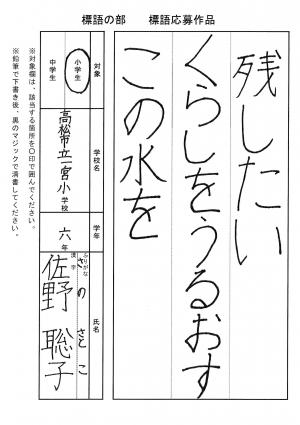 標語の部　標語応募作品
残したい
くらしをうるおす
この水を
対象
小学生
中学生
学校名
高松市立一宮小学校
学年
六年
氏名
ふりがな
さの　さとこ
漢字
佐野　聡子
※対象欄は、該当する箇所を〇印で囲んでください。
※鉛筆で下書き後、黒のマジックで清書してください。